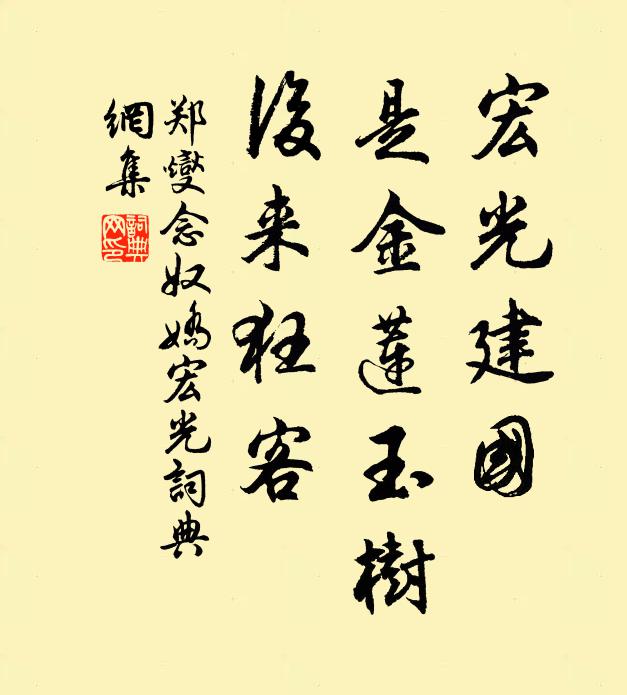 宏光建國
是金蓮玉樹
後来狂客
郑燮念奴嬌宏光詞典
網集
詞典
网印